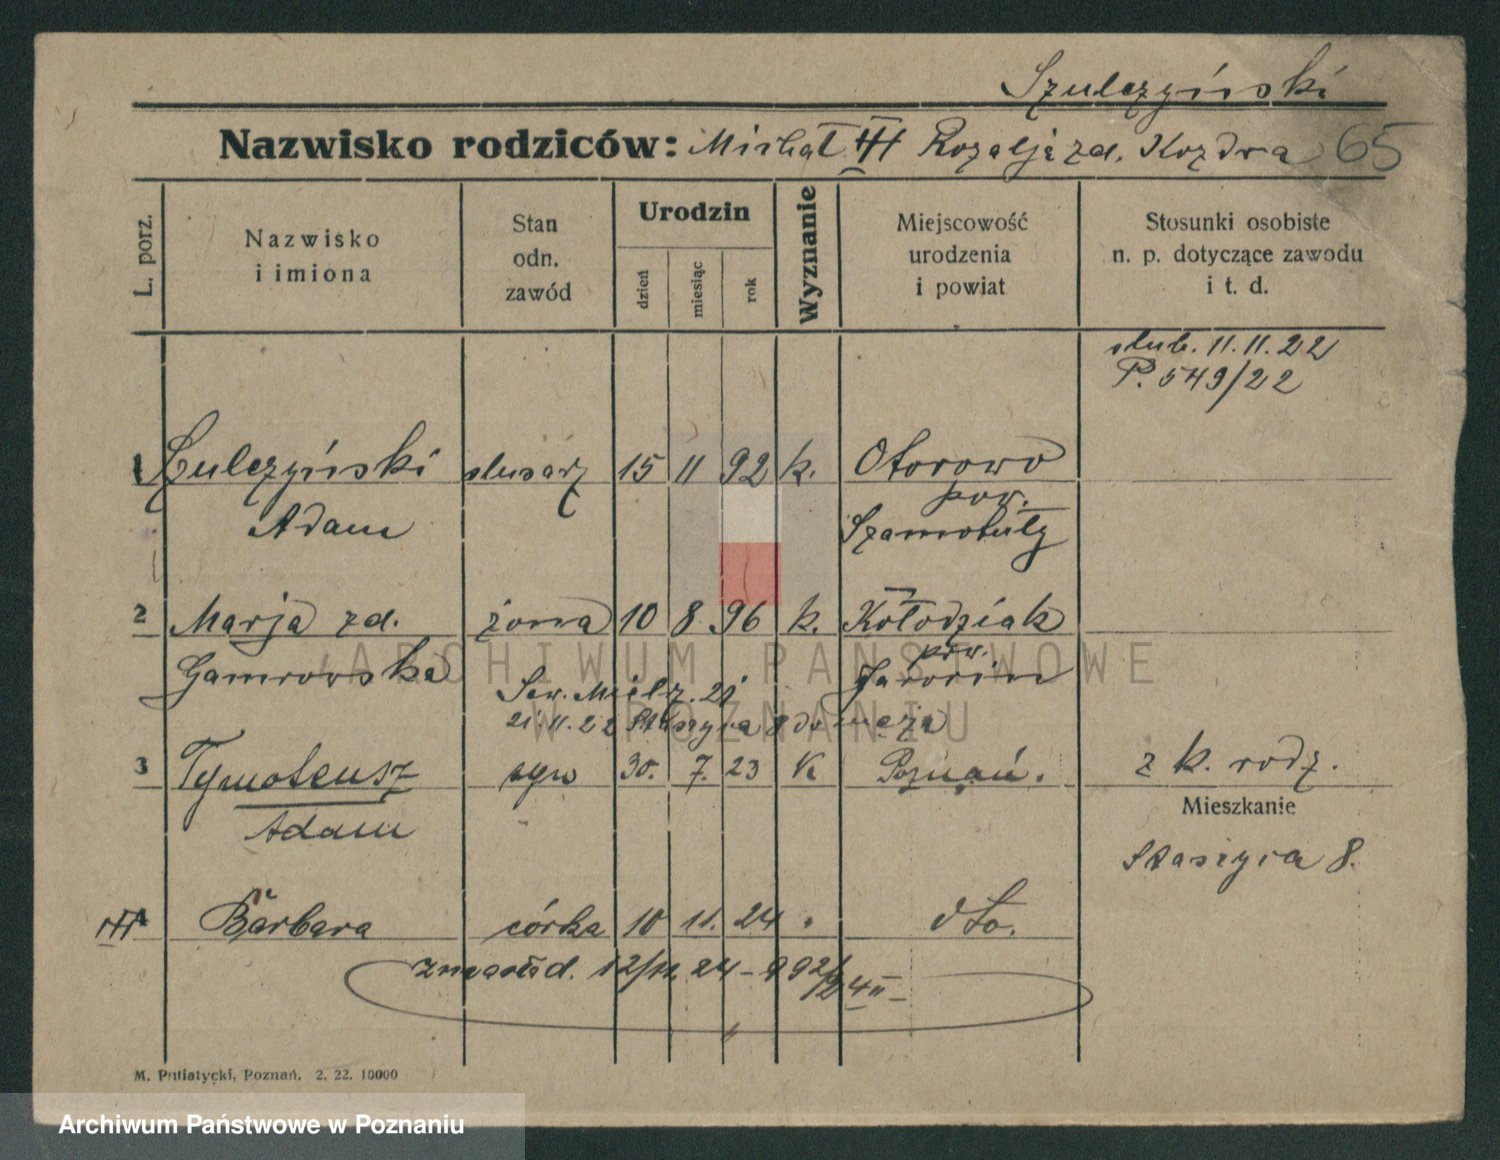 Szulczyński
Nazwisko rodziców: Michał Rozalja zd. Kozdra 65
L. porz.
Nazwisko
i imiona
Stan
odn.
zawód
Urodzin
dzień
miesiąc
rok
Wyznanie
Miejscowość
urodzenia
i powiat
Stosunki osobiste
n. p. dotyczące zawodu
i t. d.
ślub. 11.11.22
P. 549/22
1 Szulczyński ślusarz 15 11 92 k. Otorowo
pow.
Adam Szamotuły
2 Marja zd. żona 10 8 96 k. Kołodziak
pow.
Gamrowska Jarocin
21.11.22 Staszyca 8 do męża
3 Tymoteusz syn 30. 7. 23 K Poznań. z k. rodz.
Adam
Mieszkanie
Staszyca 8.
4 Barbara córka 10 11. 24 dto.
12/11. 24 - 992/24 II
M. Putiatycki, Poznań. 2. 22. 10000
ARCHIWUM PAŃSTWOWE
W POZNANIU
Archiwum Państwowe w Poznaniu